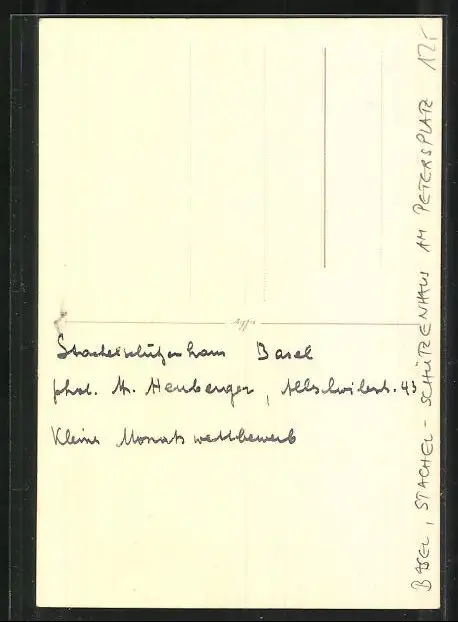 Stachelschützenhaus Basel
phot. M. Heuberger, Allschwilerst. 43
Kleiner Monatswettbewerb
BASEL, STACHEL-SCHÜTZENHAUS AM PETERSPLATZ 12,-